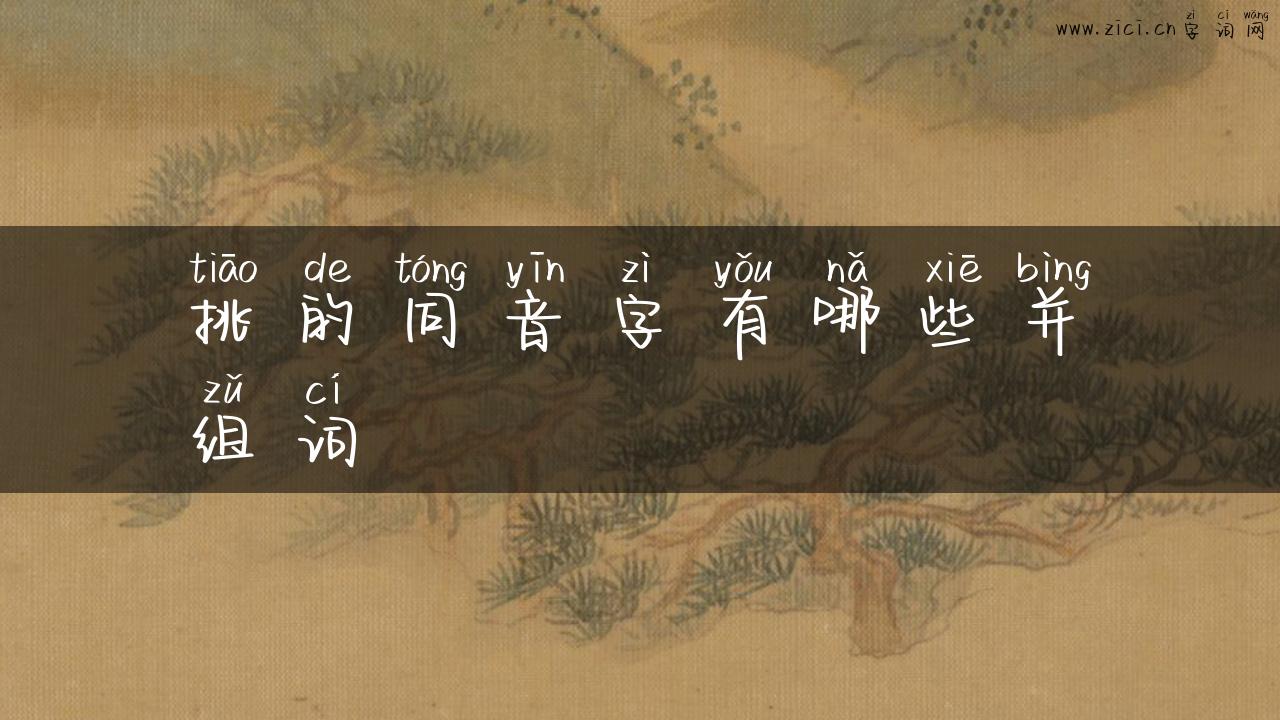 zì cí wǎng
www.zici.cn 字词网
tiāo de tóng yīn zì yǒu nǎ xiē bìng
挑的同音字有哪些并
zǔ cí
组词